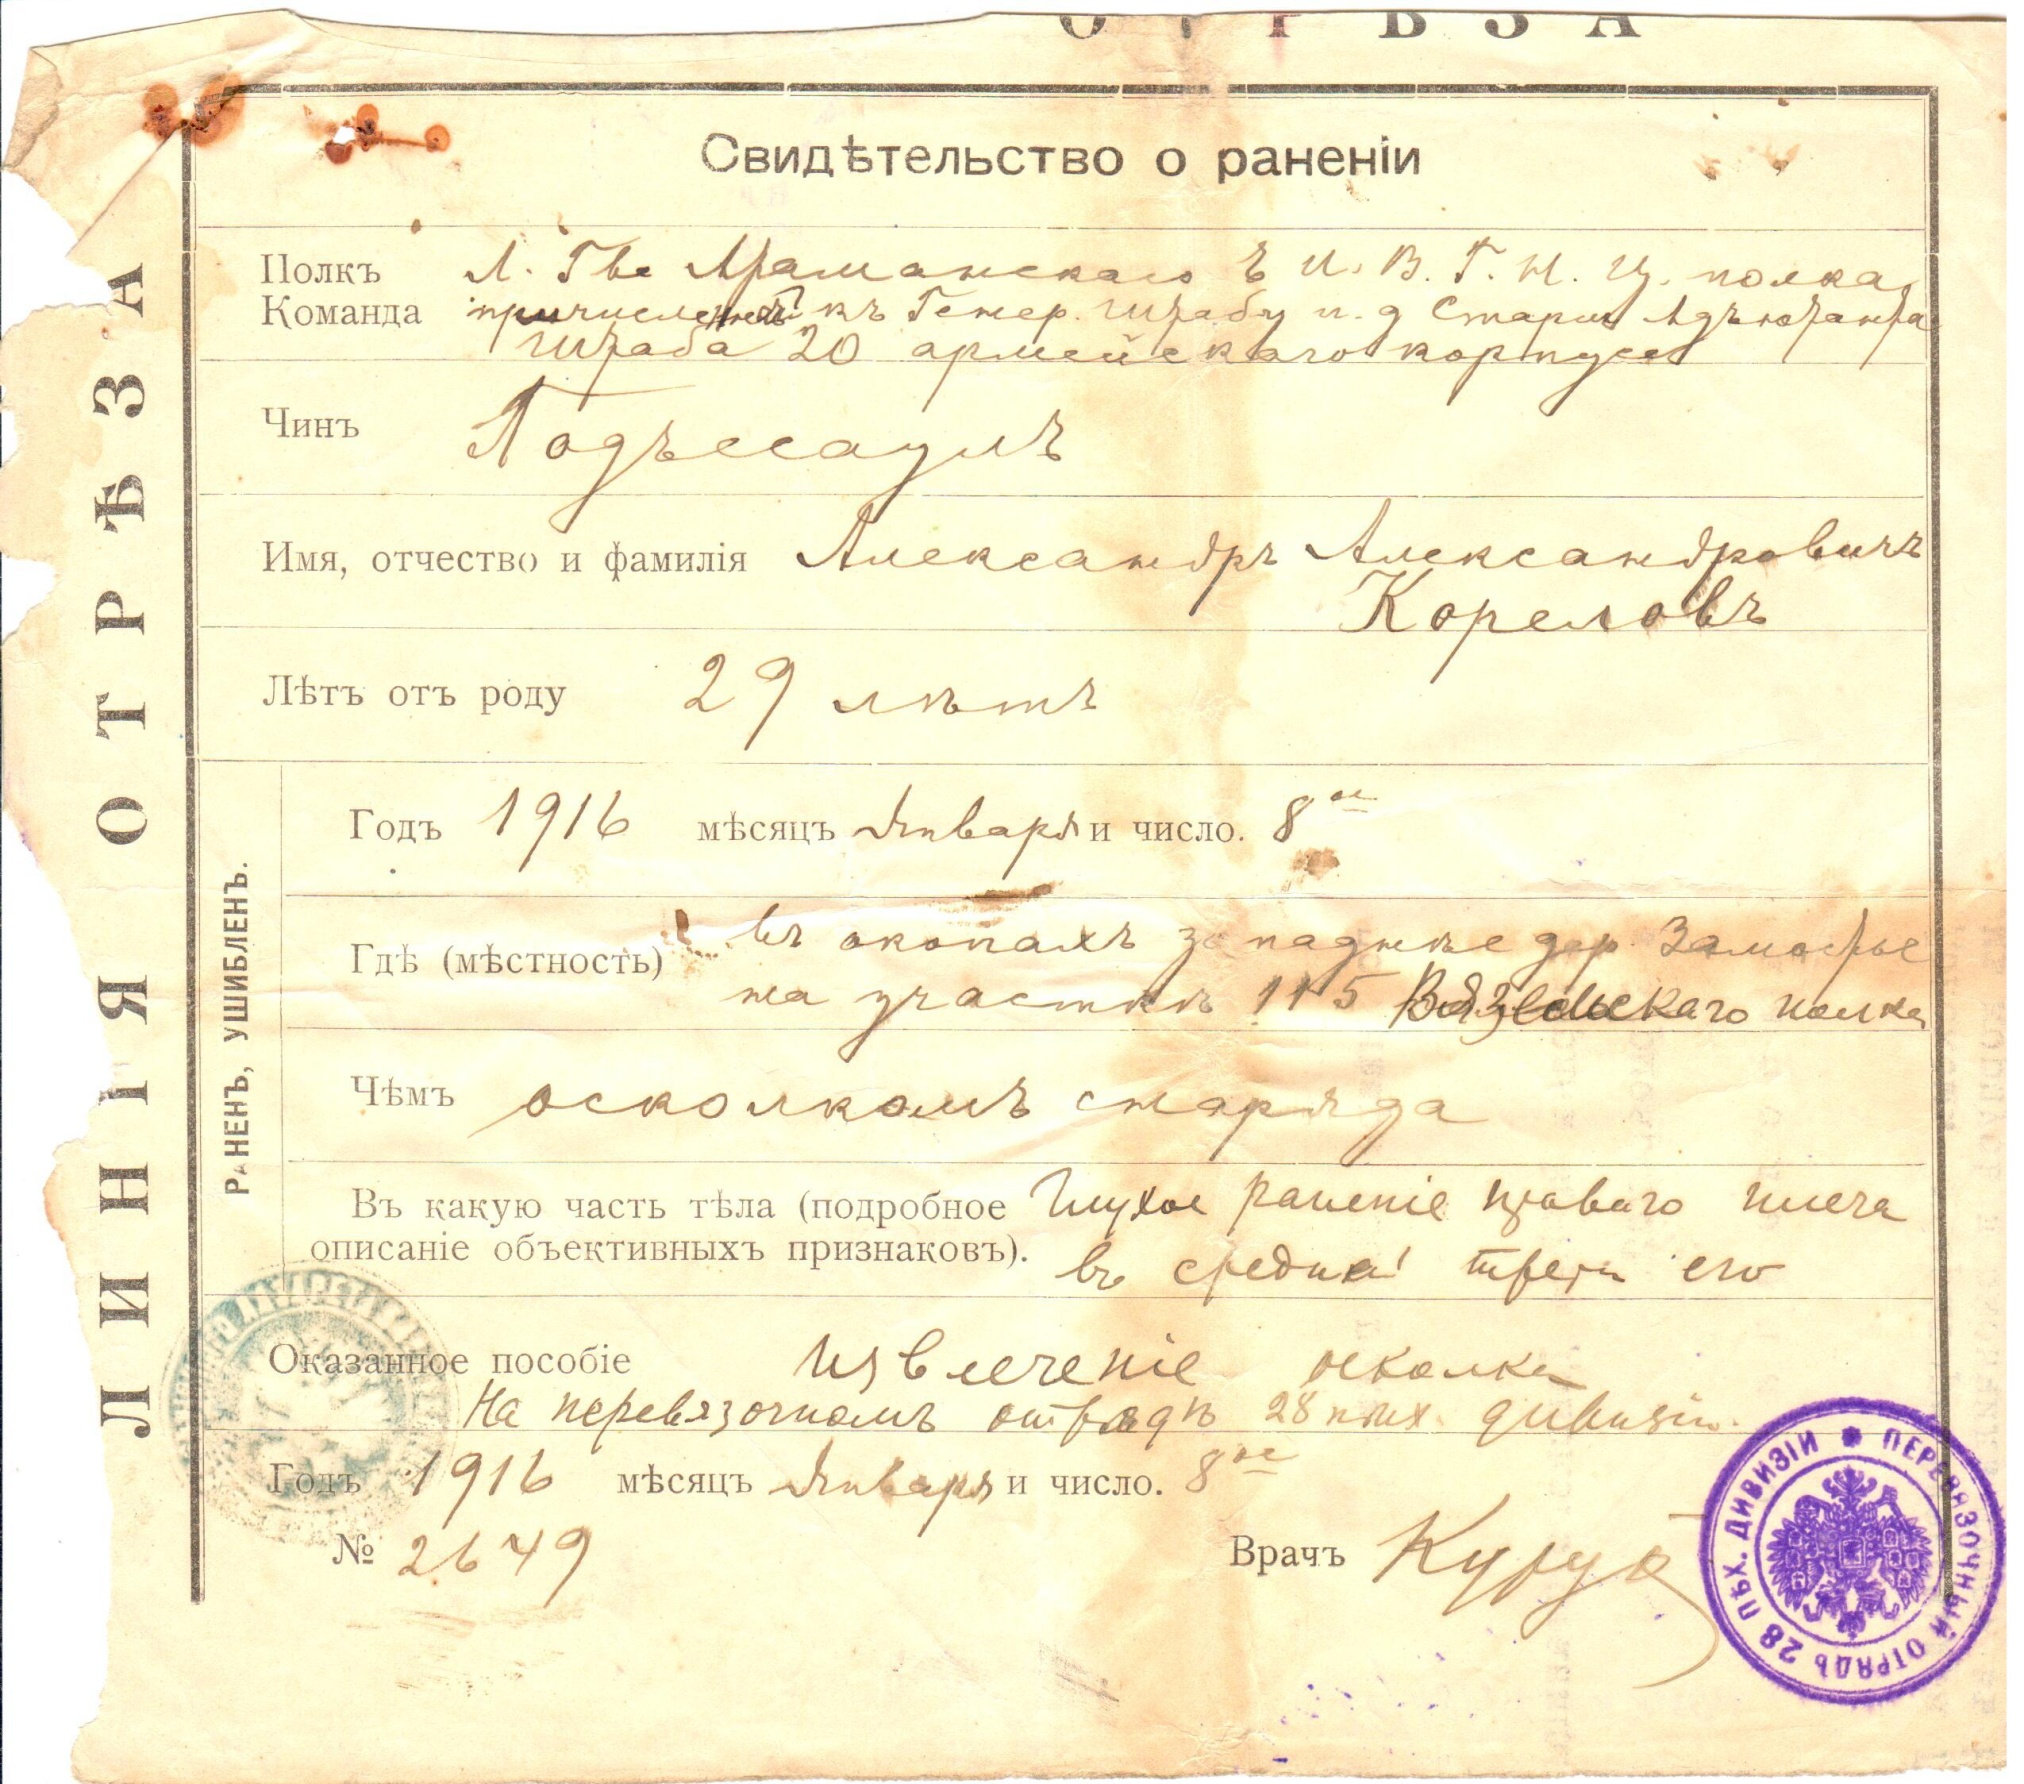 ОТРѢЗА
ЛИНІЯ ОТРѢЗА
Свидѣтельство о раненіи
Полкъ Л. Гв. Атаманскаго Е. И. В. Г. Н. Ц. полка
Команда причисленный къ Генер. Штабу и. д. Старш. Адъютанта
Штаба 20 армейскаго корпуса
Чинъ Подъесаулъ
Имя, отчество и фамилія Александръ Александровичъ
Кореловъ
Лѣтъ отъ роду 29 лѣтъ
РАНЕНЪ, УШИБЛЕНЪ.
Годъ 1916 мѣсяцъ Января и число. 8ое
Гдѣ (мѣстность) въ окопахъ западнѣе дер. Замостье
на участкѣ 115 Вяземскаго полка
Чѣмъ осколкомъ снаряда
Въ какую часть тѣла (подробное Глухое раненіе праваго плеча
описаніе объективныхъ признаковъ). въ средней трети его
Оказанное пособіе Извлеченіе осколка
На перевязочномъ отрядѣ 28 пѣх. дивизіи.
Годъ 1916 мѣсяцъ Января и число. 8ое
№ 2649
Врачъ
ПЕРЕВЯЗОЧНЫЙ ОТРЯДЪ 28 ПѢХ. ДИВИЗІИ